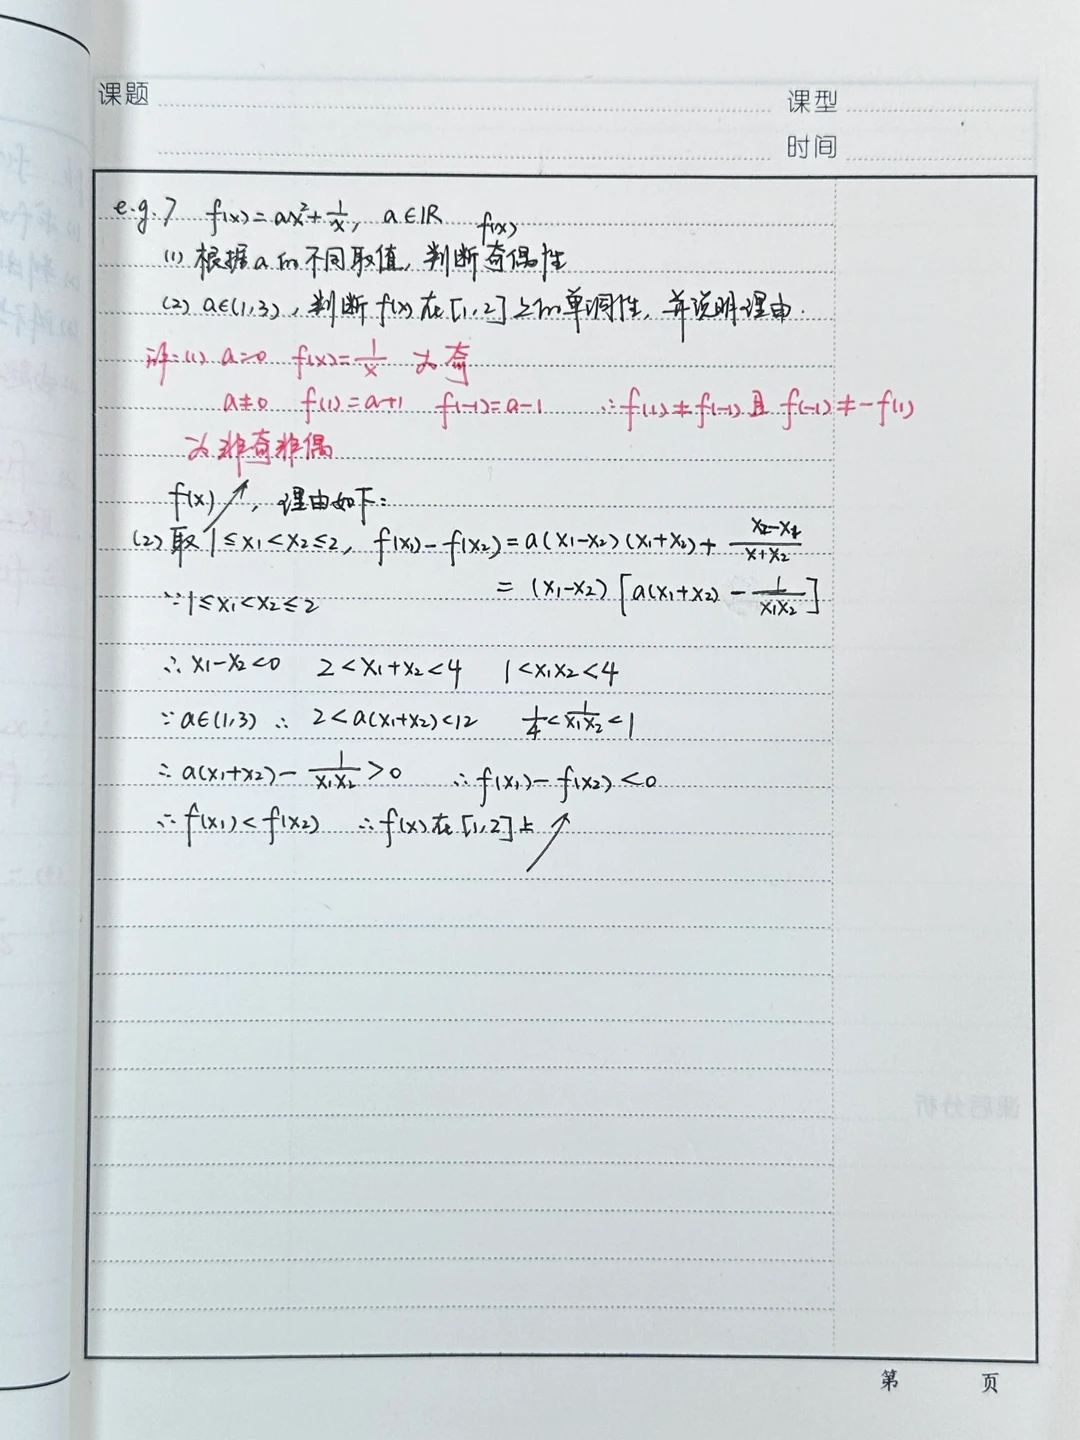 课题
课型
时间
e.g.7 f(x)=ax²+1/x, a∈R
f(x)
(1) 根据a的不同取值,判断奇偶性
(2) a∈(1,3),判断f(x)在[1,2]上的单调性,并说明理由.
解:(1) a=0 f(x)=1/x 为奇
a≠0 f(1)=a+1 f(-1)=a-1 ∴f(1)≠f(-1)且 f(-1)≠-f(1)
为非奇非偶
f(x)↗, 理由如下:
(2)取1≤x₁<x₂≤2, f(x₁)-f(x₂)=a(x₁-x₂)(x₁+x₂)+(x₂-x₁)/(x+x₂)
=(x₁-x₂)[a(x₁+x₂)-1/(x₁x₂)]
∵1≤x₁<x₂≤2
∴x₁-x₂<0 2<x₁+x₂<4 1<x₁x₂<4
∵a∈(1,3) ∴ 2<a(x₁+x₂)<12 1/4<1/(x₁x₂)<1
∴a(x₁+x₂)-1/(x₁x₂)>0 ∴f(x₁)-f(x₂)<0
∴f(x₁)<f(x₂) ∴f(x)在[1,2]上↗
课后分析
第 页